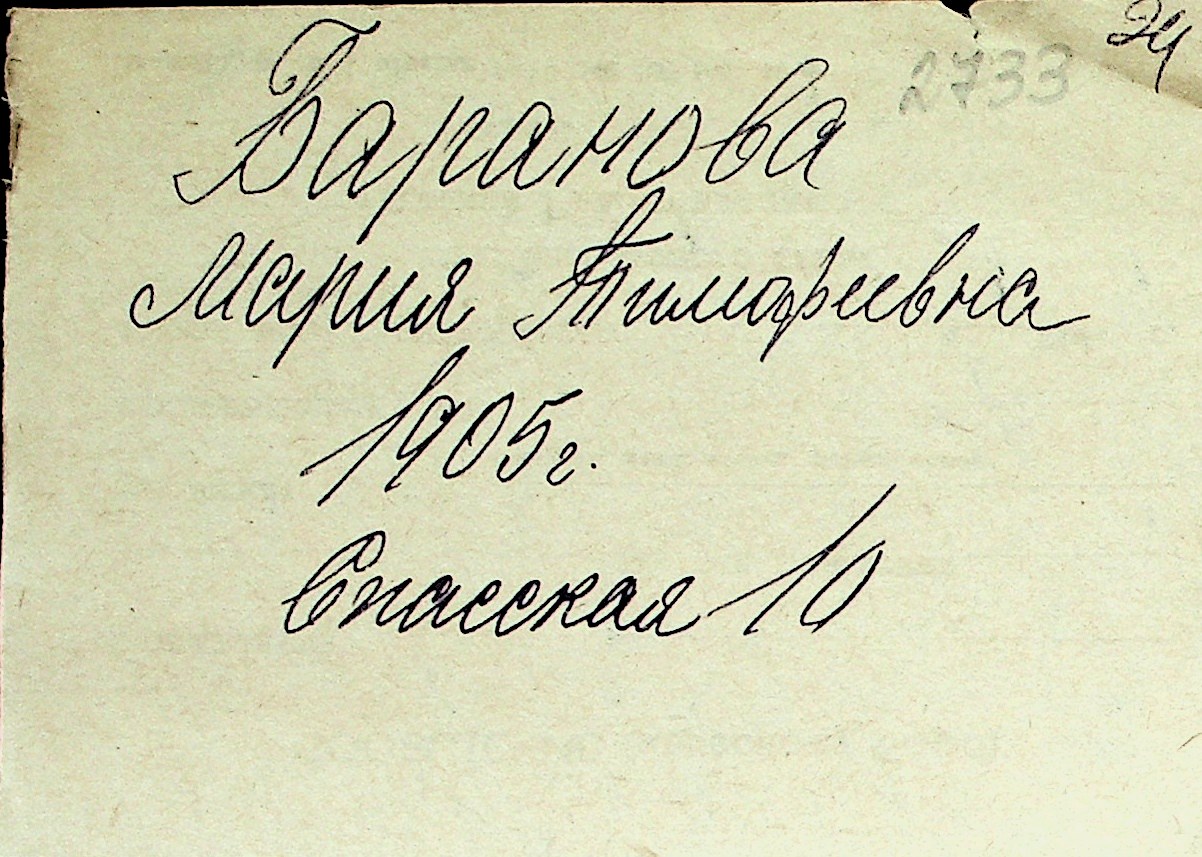 24
2733
Баранова
Мария Тимофеевна
1905г.
Спасская 10